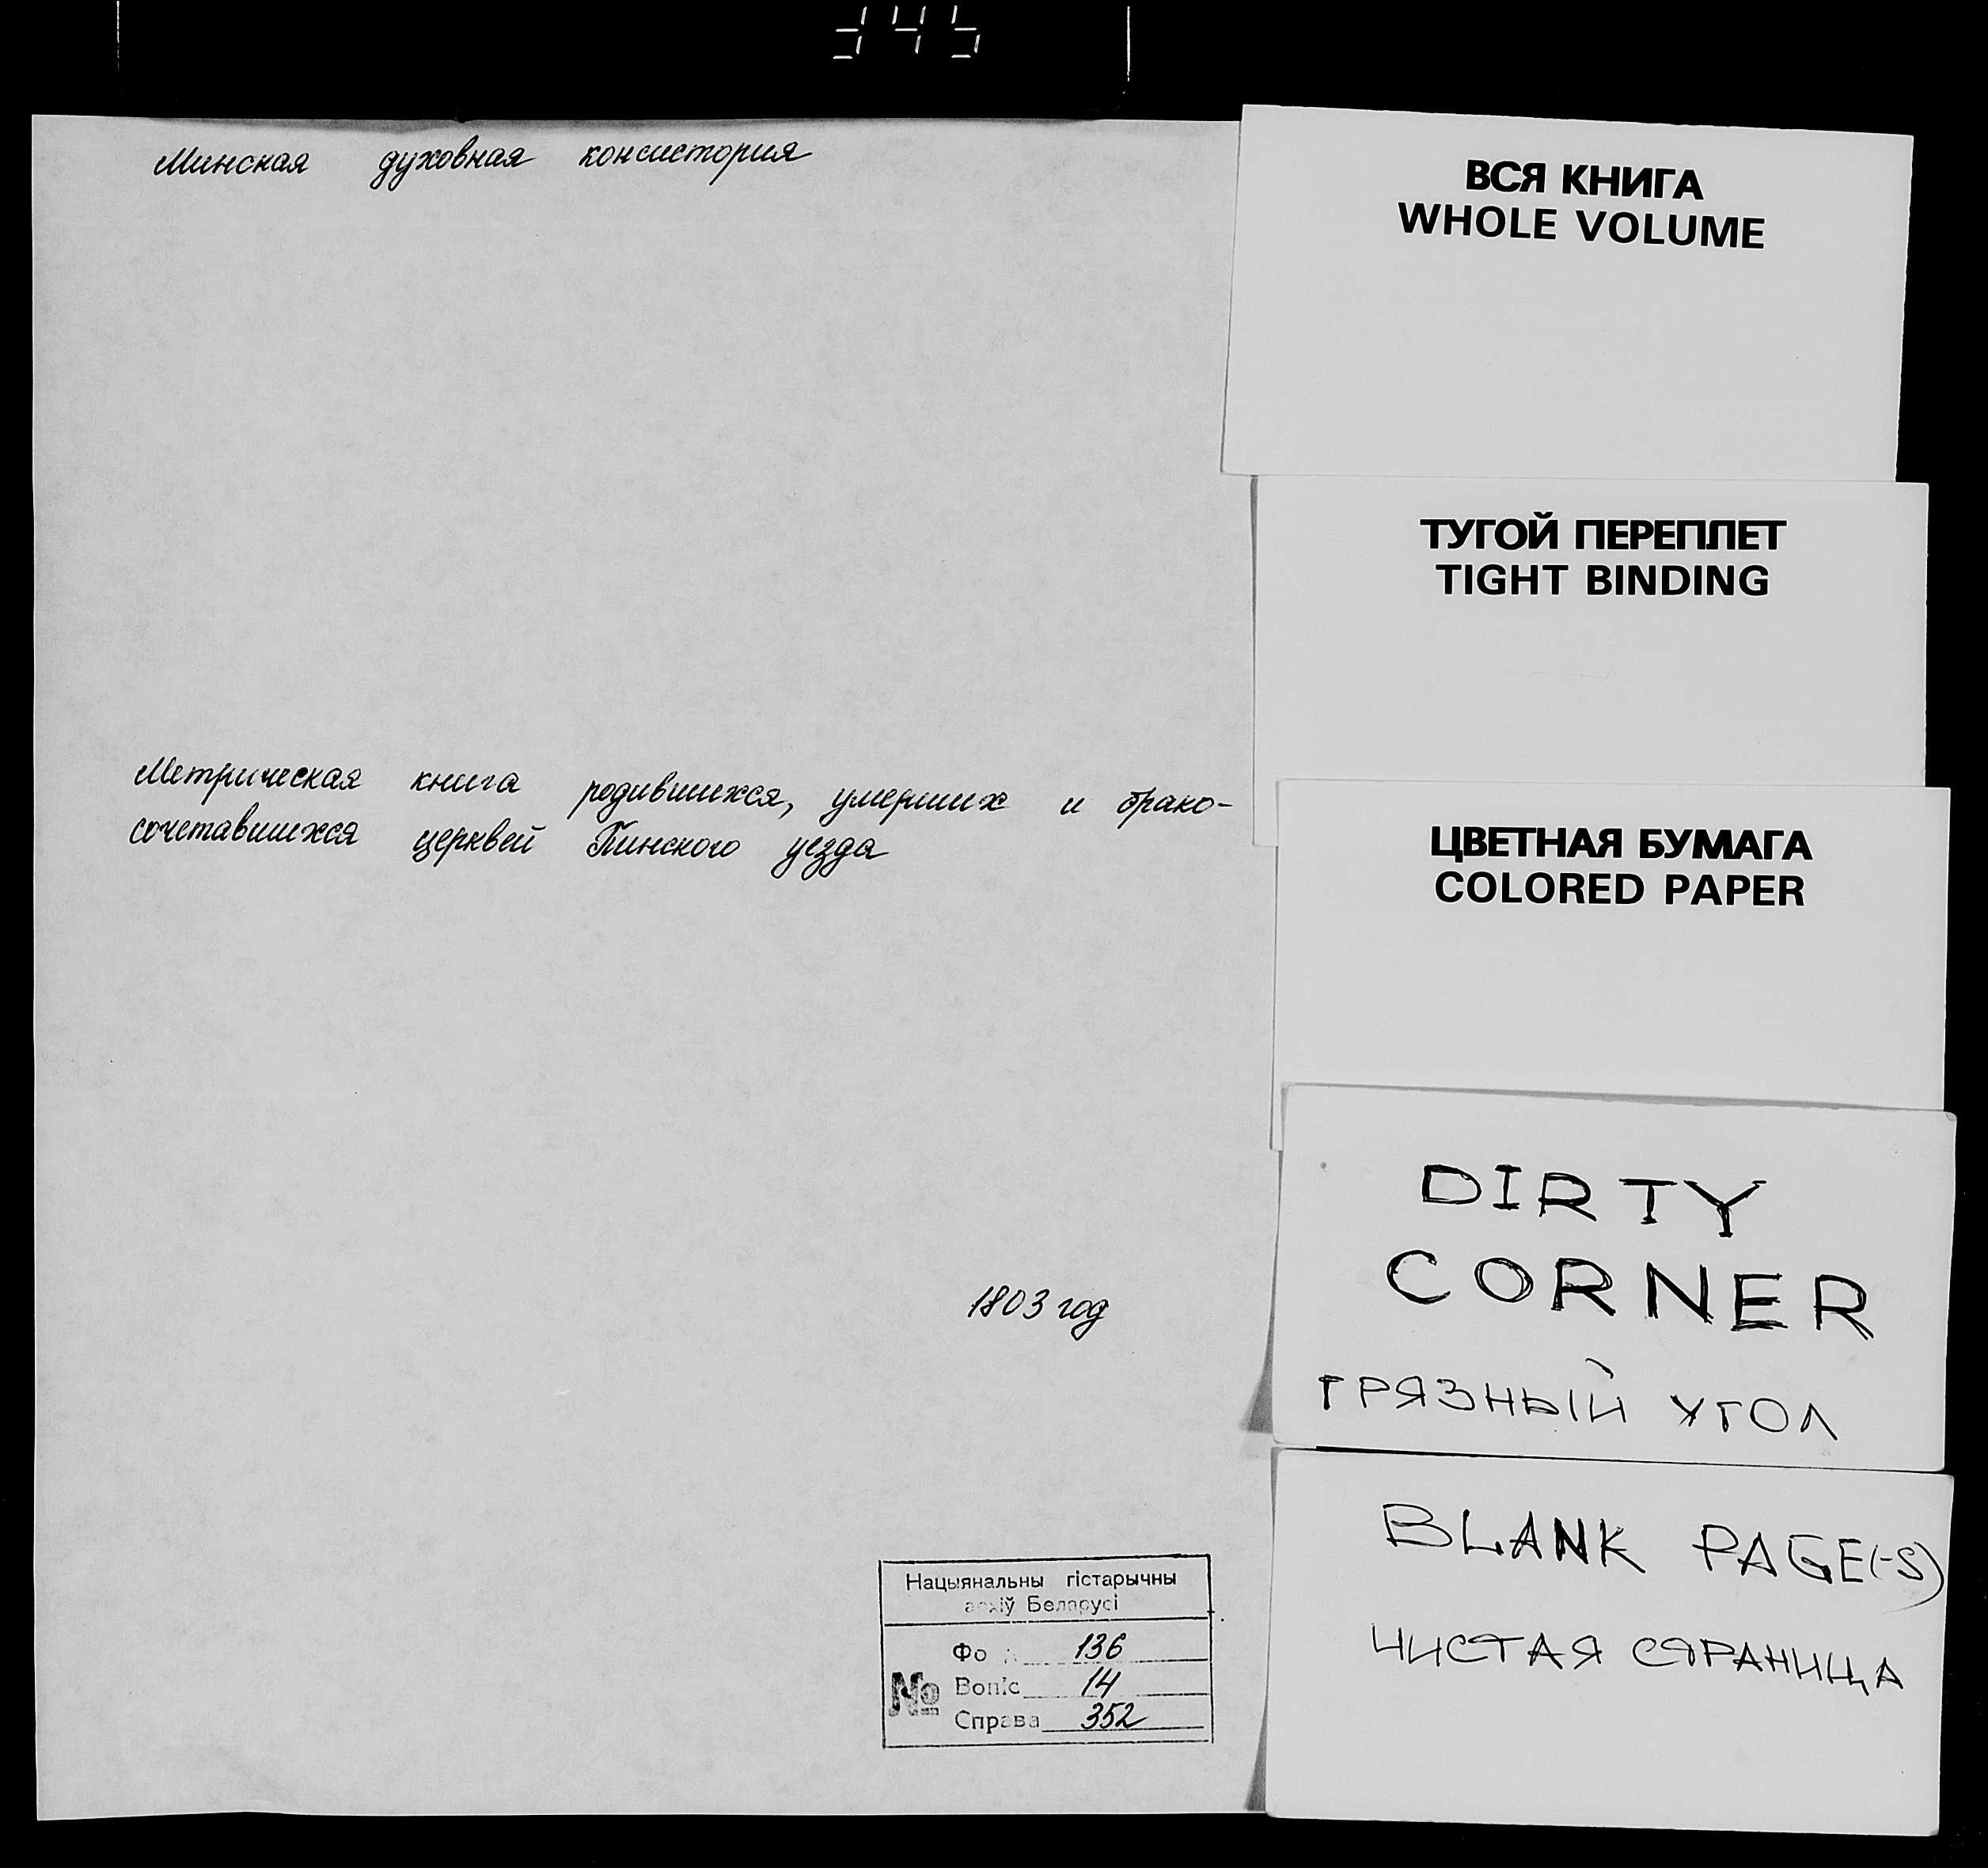 345
Минская духовная консистория
Метрическая книга родившихся, умерших и брако-
сочетавшихся церквей Пинского уезда
1803 год
Нацыянальны гістарычны
архіў Беларусі
Фо
136
№
Вопіс 14
Справа 352
ВСЯ КНИГА
WHOLE VOLUME
ТУГОЙ ПЕРЕПЛЕТ
TIGHT BINDING
ЦВЕТНАЯ БУМАГА
COLORED PAPER
DIRTY
CORNER
ГРЯЗНЫЙ УГОЛ
BLANK PAGE(-S)
ЧИСТАЯ СТРАНИЦА